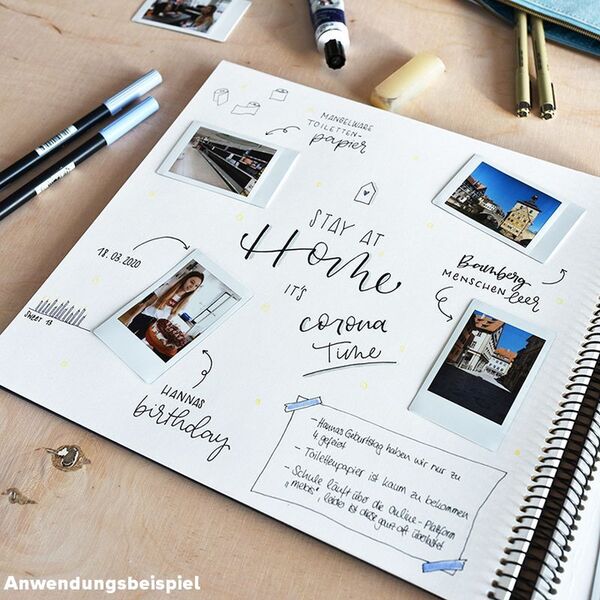 MANGELWARE
TOILETTEN-
papier
STAY AT
Home
IT'S
corona
Time
18.03.2020
SWEET 18
HANNAS
birthday
Bamberg
MENSCHENleer
- Hannas Geburtstag haben wir nur zu
4 gefeiert
- Toilettenpapier ist kaum zu bekommen
- Schule läuft über die Online-Plattform
„mebis“, leider ist diese ganz oft überlastet
Anwendungsbeispiel